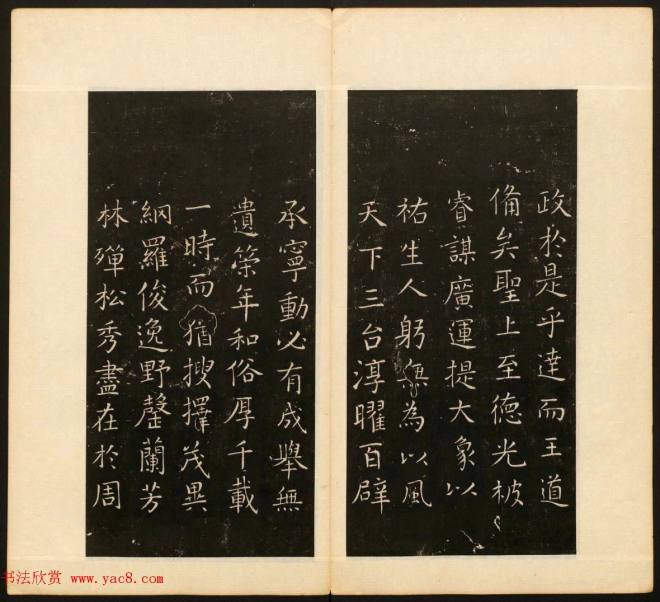 政於是乎達而王道
備矣聖上至德光被
睿謀廣運提大象以
祐生人躬無為以風
天下三台淳曜百辟
承寧動必有成舉無
遺策年和俗厚千載
一時而猶搜擇茂異
網羅俊逸野罄蘭芳
林殫松秀盡在於周
书法欣赏 www.yac8.com